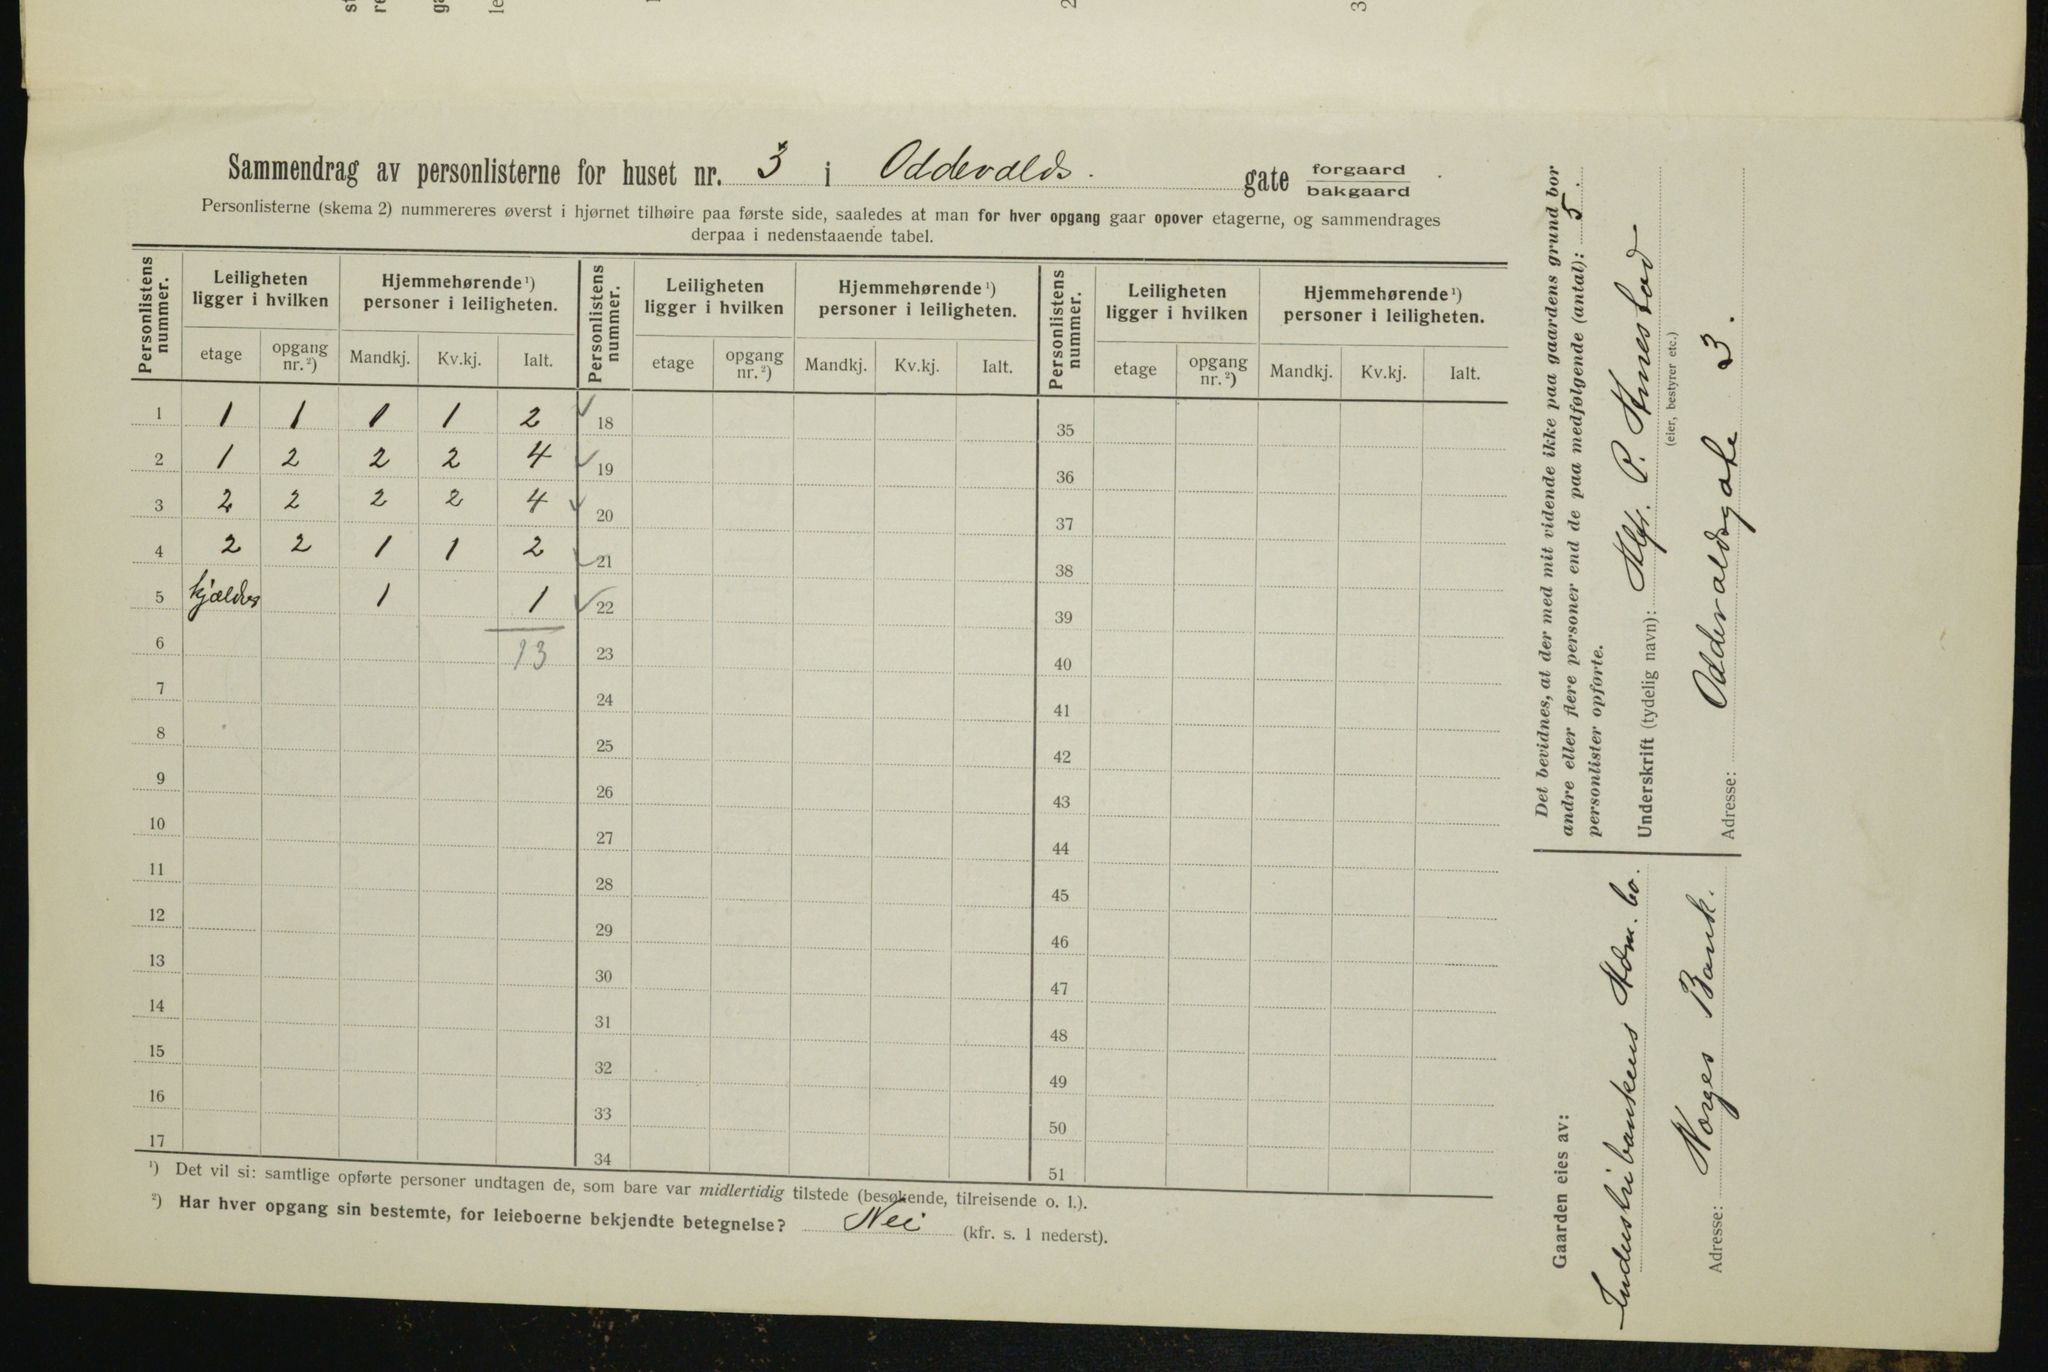 Sammendrag av personlisterne for huset nr. 3 i Oddevalds. gate forgaard bakgaard
Personlisterne (skema 2) nummereres øverst i hjørnet tilhøire paa første side, saaledes at man for hver opgang gaar opover etagerne, og sammendrages
derpaa i nedenstaaende tabel.
Personlistens nummer. Leiligheten ligger i hvilken Hjemmehørende ¹) personer i leiligheten. Personlistens nummer. Leiligheten ligger i hvilken Hjemmehørende ¹) personer i leiligheten. Personlistens nummer. Leiligheten ligger i hvilken Hjemmehørende ¹) personer i leiligheten.
etage opgang nr. ²) Mandkj. Kv.kj. Ialt. etage opgang nr. ²) Mandkj. Kv.kj. Ialt. etage opgang nr. ²) Mandkj. Kv.kj. Ialt.
1 1 1 1 1 2 18 35
2 1 2 2 2 4 19 36
3 2 2 2 2 4 20 37
4 2 2 1 1 2 21 38
5 kjælder 1 1 22 39
6 13 23 40
7 24 41
8 25 42
9 26 43
10 27 44
11 28 45
12 29 46
13 30 47
14 31 48
15 32 49
16 33 50
17 34 51
¹) Det vil si: samtlige opførte personer undtagen de, som bare var midlertidig tilstede (besøkende, tilreisende o. l.).
²) Har hver opgang sin bestemte, for leieboerne bekjendte betegnelse? Nei (kfr. s. 1 nederst).
Det bevidnes, at der med mit vidende ikke paa gaardens grund bor
andre eller flere personer end de paa medfølgende (antal): 5.
personlister opførte.
Underskrift (tydelig navn): Alfr. P.
(eier, bestyrer etc.)
Adresse: Oddevaldsgate 3.
Gaarden eies av:
Industribankens Adm. bo.
Adresse: Norges Bank.